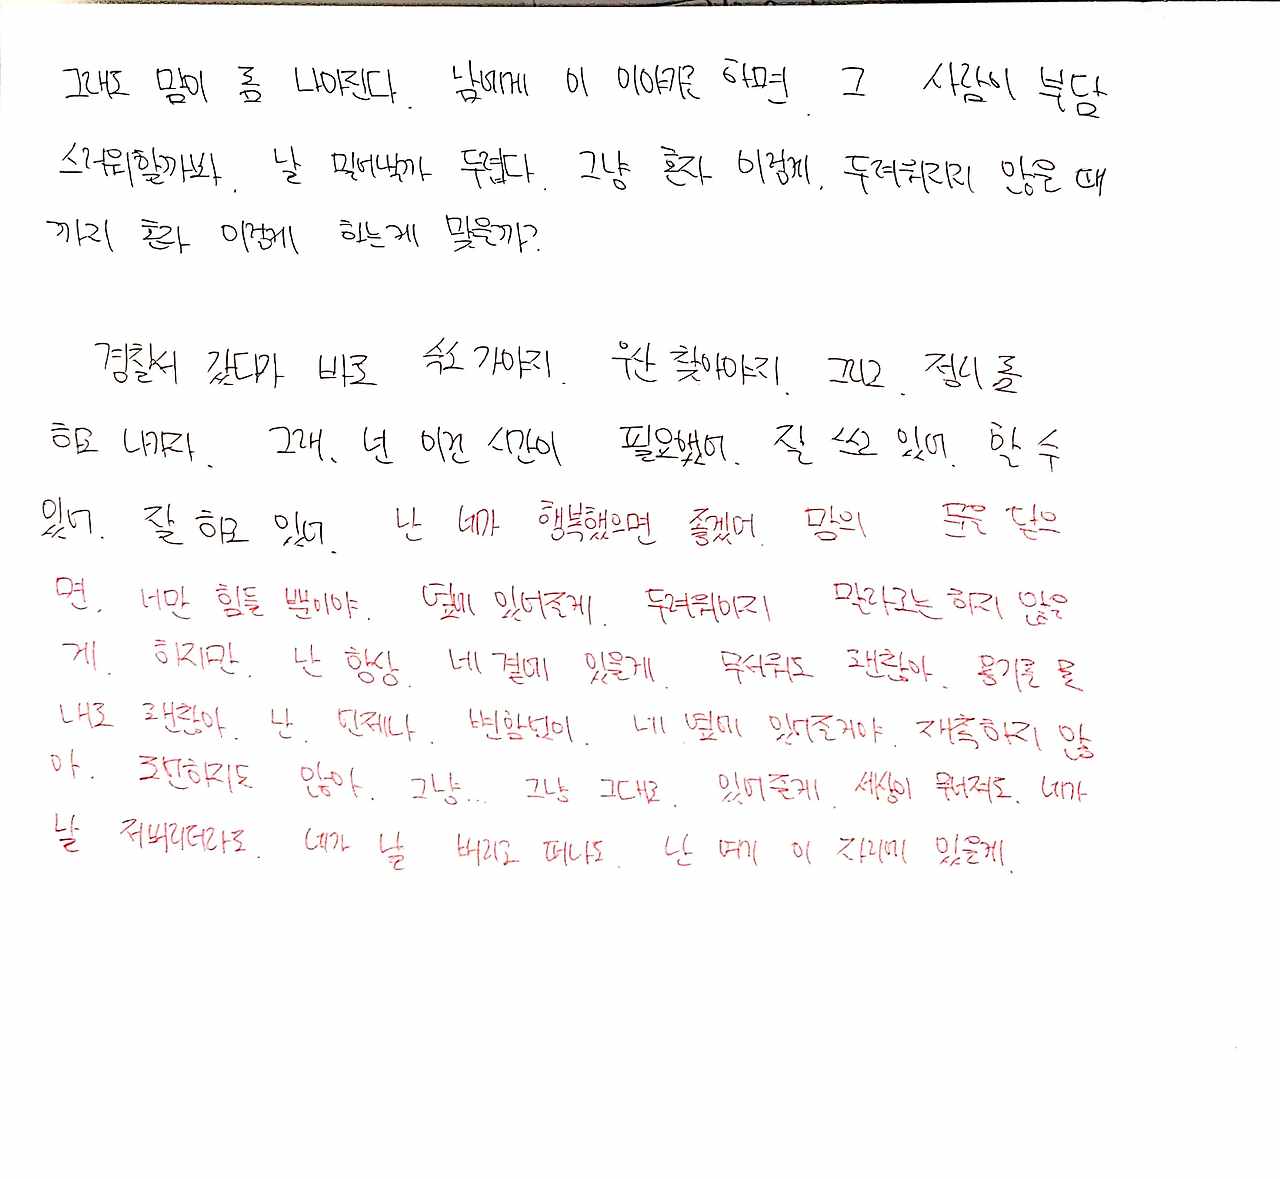 그래도 맘이 좀 나아진다. 남에게 이 이야기로 하면. 그 사람이 부담
스러워할까봐. 날 밀어낼까 두렵다. 그냥 혼자 이렇게. 두려워지지 않을 때
까지 혼자 이렇게 하는게 맞을까?
경찰서 갔다가 바로 숙소 가야지. 우산 찾아야지. 그리고. 정리를
하고 나가자. 그래. 넌 이런 시간이 필요했어. 잘 쓰고 있어. 할 수
있어. 잘 하고 있어. 난 네가 행복했으면 좋겠어. 맘의 문을 닫으
면. 너만 힘들 뿐이야. 옆에 있어줄게. 두려워하지 말라고는 하지 않을
게. 하지만. 난 항상. 네 곁에 있을게. 무서워도 괜찮아. 용기를 못
내도 괜찮아. 난. 언제나. 변함없이. 네 옆에 있어줄거야. 재촉하지 않
아. 조언하지도 않아. 그냥... 그냥 그대로. 있어줄게. 세상이 무너져도. 네가
날 저버리더라도. 네가 날 버리고 떠나도. 난 여기 이 자리에 있을게.